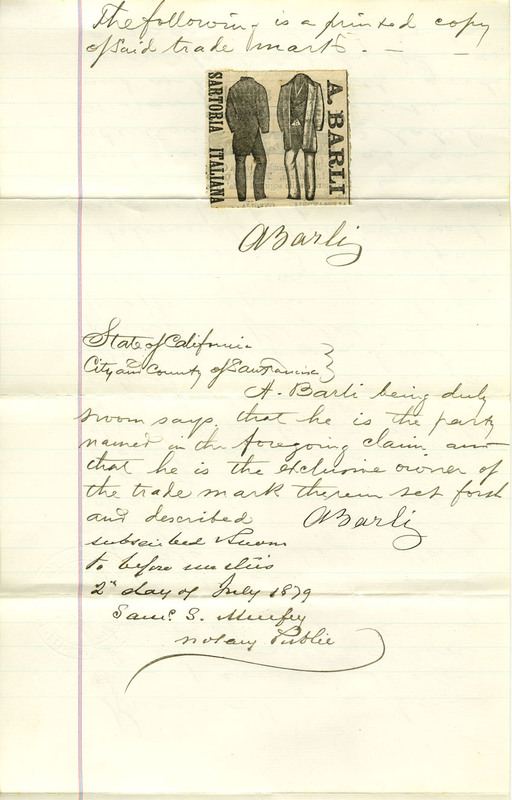 The following is a printed copy
of said trade mark. —  —
SARTORIA ITALIANA
A. BARLI
A Barli
State of California
City and County of San Francisco
A. Barli being duly
sworn says, that he is the party
named in the foregoing claim, and
that he is the exclusive owner of
the trade mark therein set forth
and described
A Barli
subscribed & sworn
to before me this
2d day of July 1879
Saml. S. Murfey
Notary Public